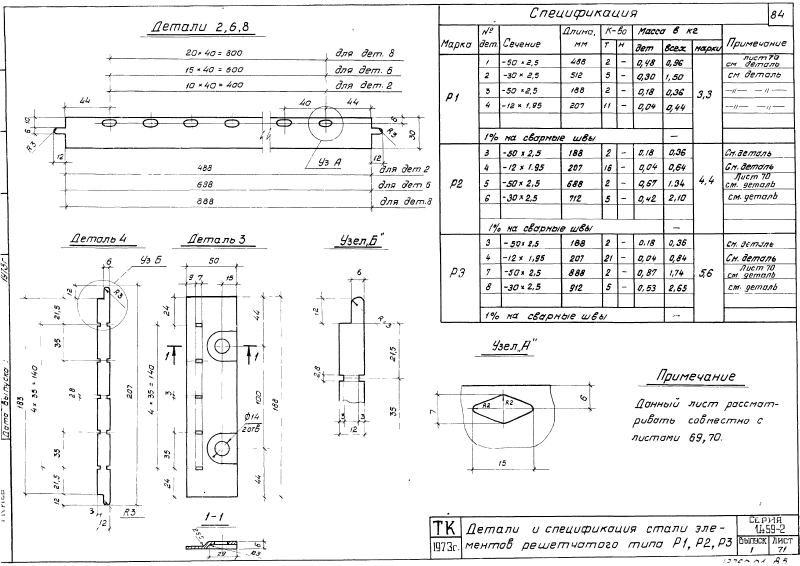 Детали 2,6,8
20 × 40 = 800 для дет. 8
15 × 40 = 600 для дет. 6
10 × 40 = 400 для дет. 2
44 40 44
10 6 R3 12 Уз А 12 R3 30
488 для дет 2
688 для дет 6
888 для дет. 8
Деталь 4
6 Уз Б
12 R3
21,5
35
4 × 35 = 140
28
183
207
35
21,5
12
3
12 R3
Деталь 3
50
9 7 15
24
44
35
1 1
4 × 35 = 140
3
100
188
Ф14
2 отв
35
24
44
1-1
6
29 R3
Узел „Б"
6
12
R=3
21,5
2,8
35
3 3
12
Узел „А"
R2 R2
7
6
15
Спецификация 84
Марка № дет. Сечение Длина, мм К-во т н Масса в кг дет всех марки Примечание
Р1 3,3
1 -50 × 2,5 488 2 - 0,48 0,96 Лист 70 см деталь
2 -30 × 2,5 512 5 - 0,30 1,50 см деталь
3 -50 × 2,5 188 2 - 0,18 0,36 —"— —"—
4 -12 × 1,95 207 11 - 0,04 0,44 —"— —"—
1% на сварные швы —
Р2 4,4
3 -50 × 2,5 188 2 - 0,18 0,36 См. деталь
4 -12 × 1.95 207 16 - 0,04 0,64 См. деталь
5 -50 × 2,5 688 2 - 0,67 1.34 Лист 70 см. деталь
6 -30 × 2,5 712 5 - 0,42 2,10 см. деталь
1% на сварные швы —
Р3 5,6
3 -50 × 2,5 188 2 - 0.18 0,36 см. деталь
4 -12 × 1,95 207 21 - 0,04 0,84 См. деталь
7 -50 × 2,5 888 2 - 0,87 1,74 Лист 70 см. деталь
8 -30 × 2,5 912 5 - 0,53 2,65 см. деталь
1% на сварные швы —
Примечание
Данный лист рассмат-
ривать совместно с
листами 69,70.
ТК
1973г.
Детали и спецификация стали эле-
ментов решетчатого типа Р1, Р2, Р3
Серия
1.459-2
Выпуск 1
Лист 71
Дата выпуска: 1973г